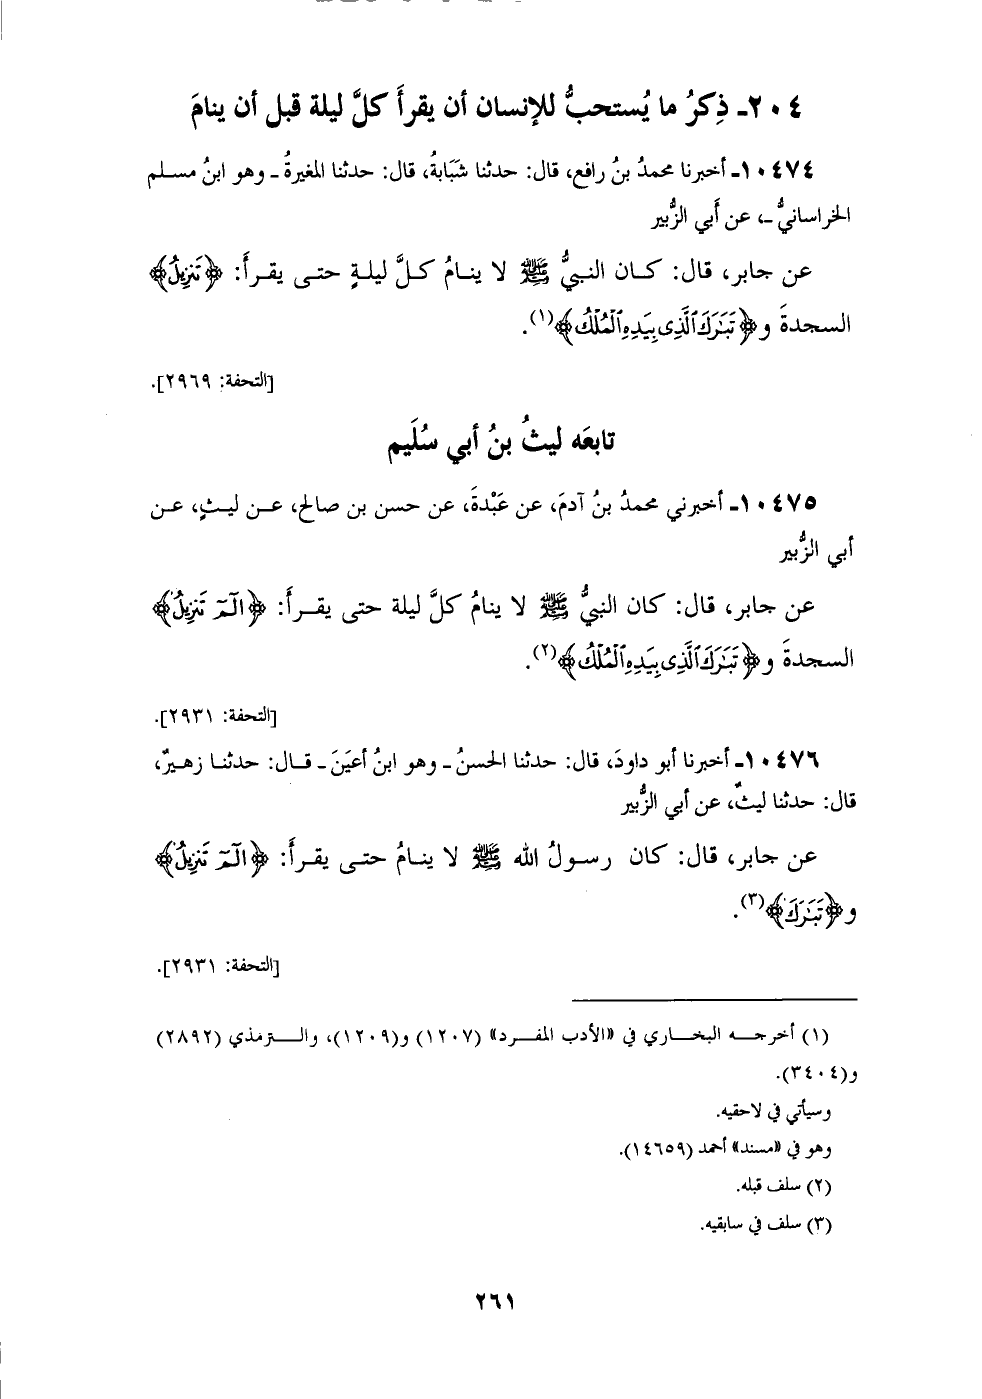 ٢٠٤ـ ذِكرُ ما يُستحبُّ للإنسان أن يقرأَ كلَّ ليلة قبل أن ينامَ
١٠٤٧٤ـ أخبرنا محمدُ بنُ رافع، قال: حدثنا شَبَابةُ، قال: حدثنا المغيرةُ ـ وهو ابنُ مسلم
الخراسانيُّ ـ، عن أبي الزُّبير
عن جابر، قال: كان النبيُّ ﷺ لا ينامُ كلَّ ليلةٍ حتى يقرأَ: ﴿تَنزِيلُ﴾
السجدةَ و﴿تَبَٰرَكَ ٱلَّذِى بِيَدِهِ ٱلْمُلْكُ﴾(١).
[التحفة: ٢٩٦٩].
تابعَه ليثُ بنُ أبي سُلَيم
١٠٤٧٥ـ أخبرني محمدُ بنُ آدمَ، عن عَبْدةَ، عن حسن بن صالح، عن ليثٍ، عن
أبي الزُّبير
عن جابر، قال: كان النبيُّ ﷺ لا ينامُ كلَّ ليلة حتى يقرأَ: ﴿الٓمٓ تَنزِيلُ﴾
السجدةَ و﴿تَبَٰرَكَ ٱلَّذِى بِيَدِهِ ٱلْمُلْكُ﴾(٢).
[التحفة: ٢٩٣١].
١٠٤٧٦ـ أخبرنا أبو داودَ، قال: حدثنا الحسنُ ـ وهو ابنُ أعيَنَ ـ قال: حدثنا زهيرٌ،
قال: حدثنا ليثٌ، عن أبي الزُّبير
عن جابر، قال: كان رسولُ الله ﷺ لا ينامُ حتى يقرأَ: ﴿الٓمٓ تَنزِيلُ﴾
و﴿تَبَٰرَكَ﴾(٣).
[التحفة: ٢٩٣١].
(١) أخرجه البخاري في «الأدب المفرد» (١٢٠٧) و(١٢٠٩)، والترمذي (٢٨٩٢)
و(٣٤٠٤).
وسيأتي في لاحقيه.
وهو في «مسند» أحمد (١٤٦٥٩).
(٢) سلف قبله.
(٣) سلف في سابقيه.
٢٦١